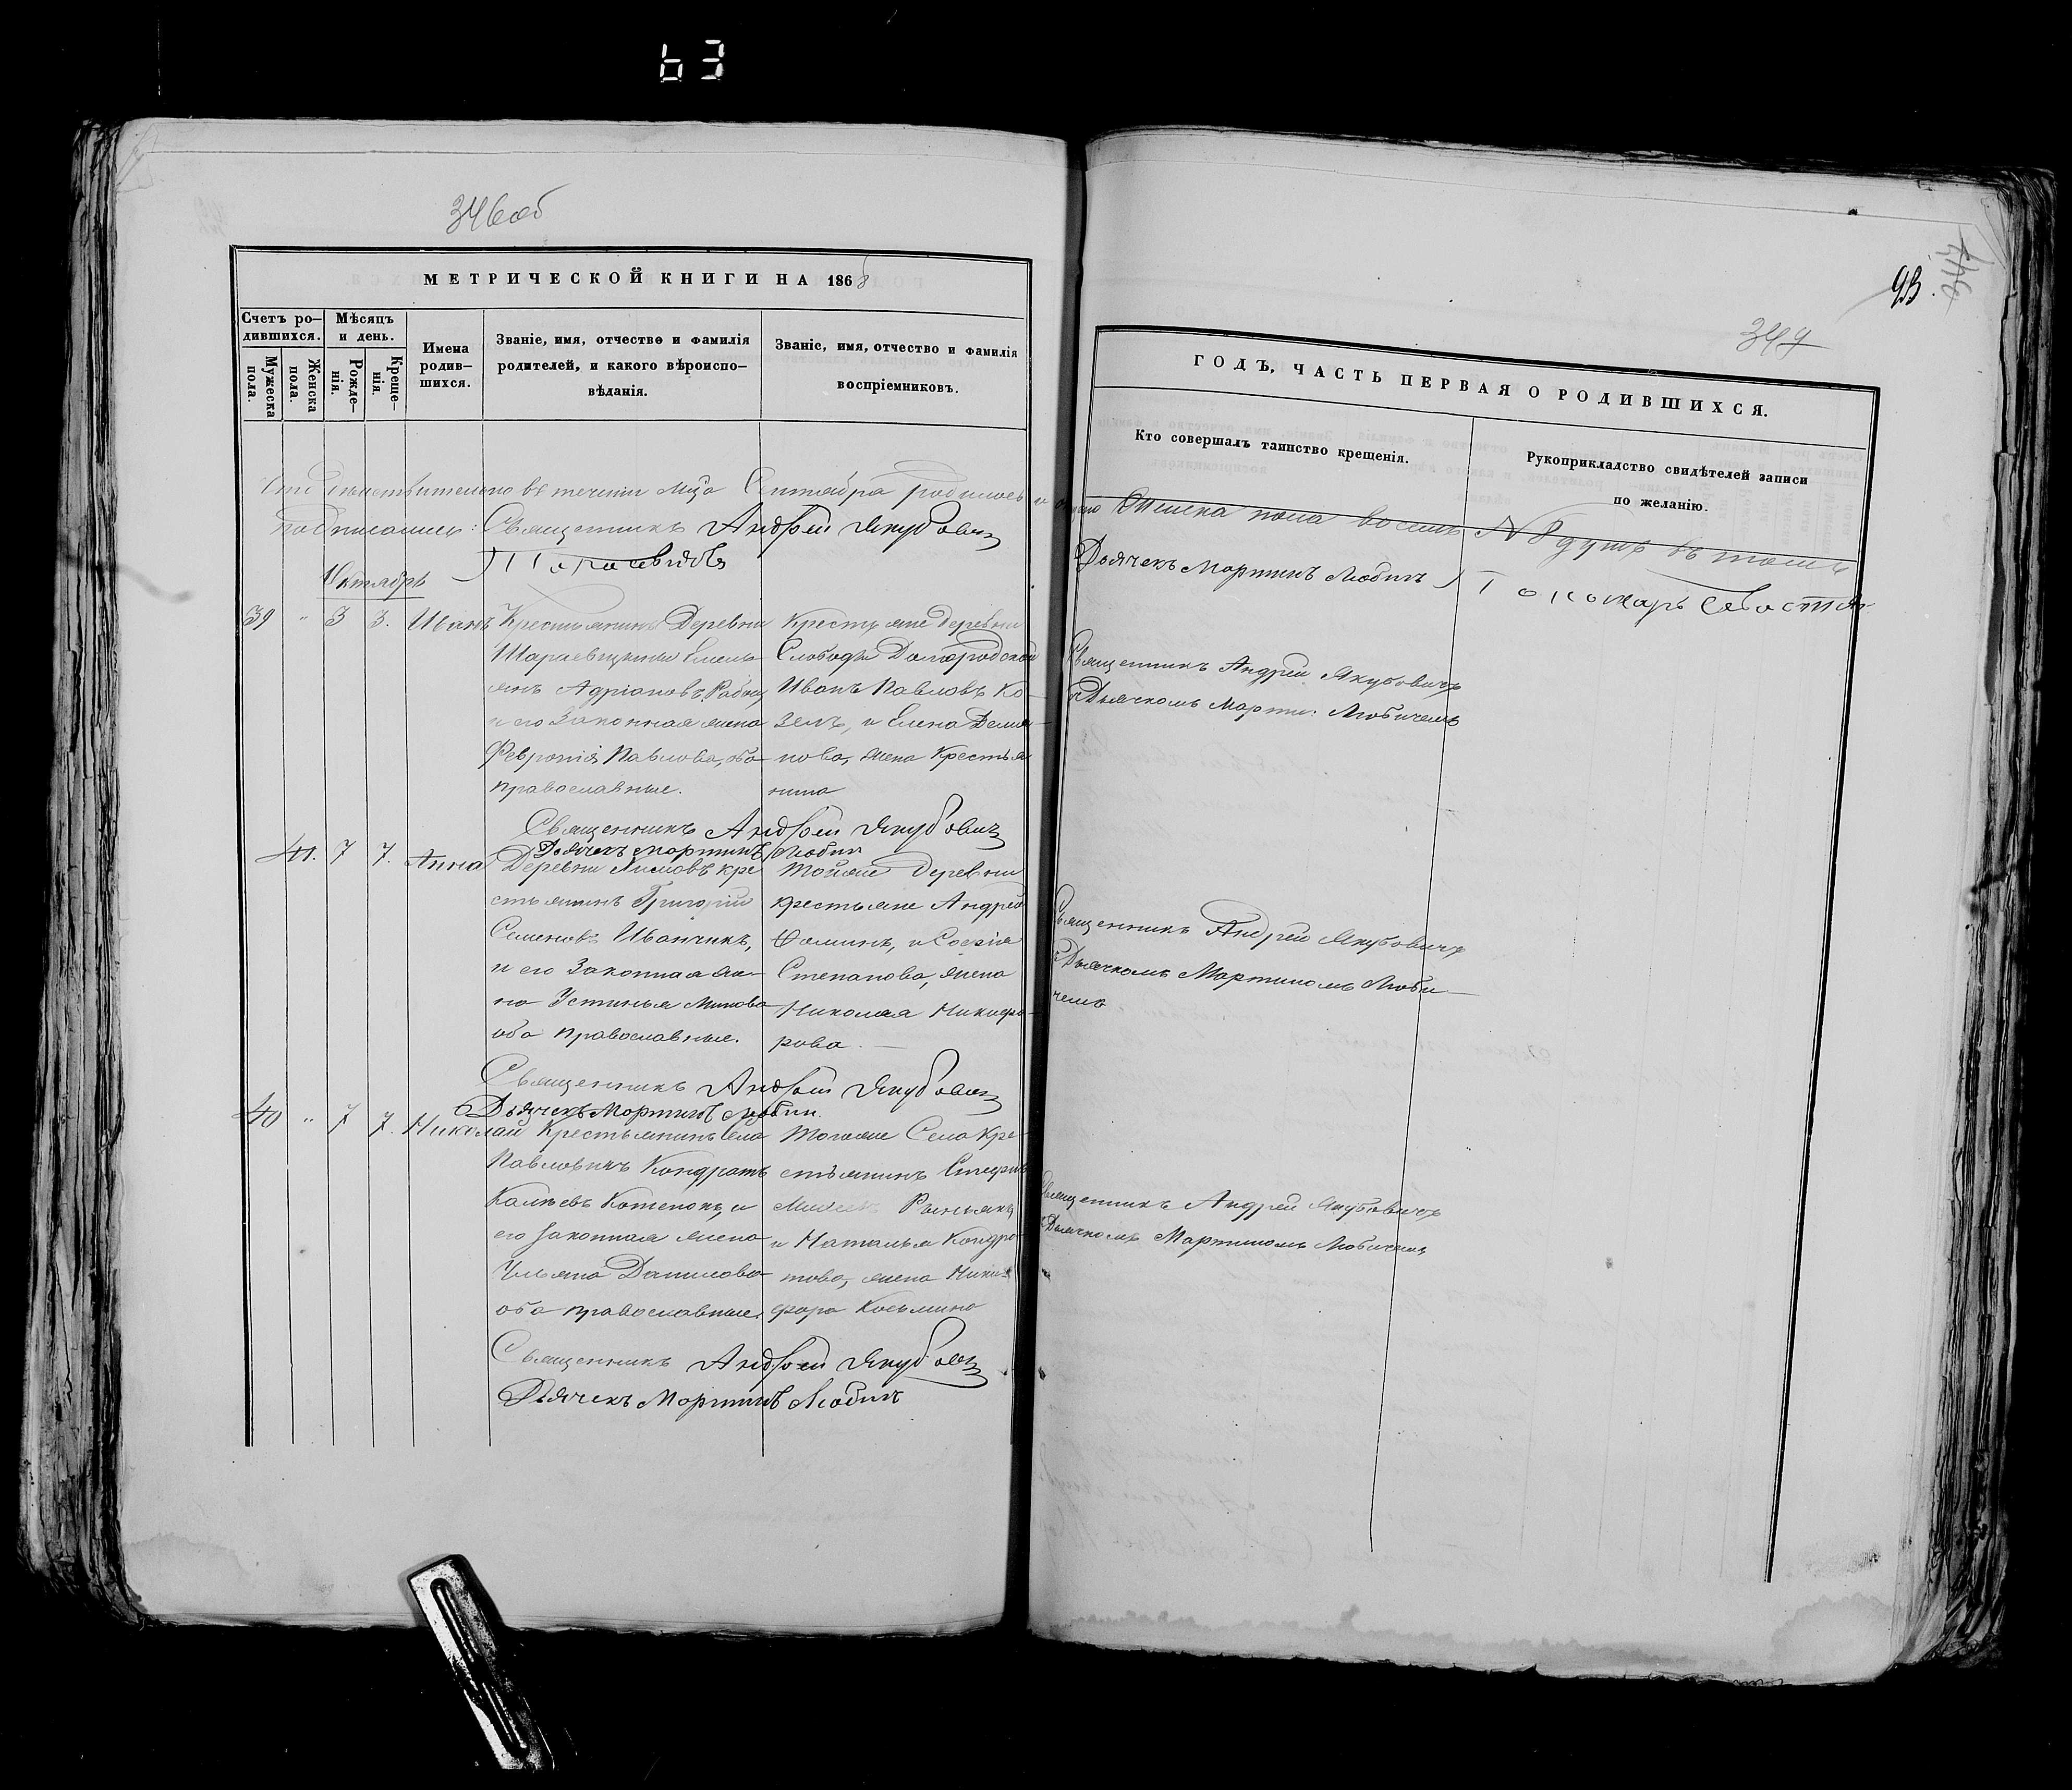 63
346 об
МЕТРИЧЕСКОЙ КНИГИ НА 1868
Счетъ ро-
дившихся.
Мѣсяцъ
и день.
Мужеска
пола.
Женска
пола.
Рожде-
нія.
Креще-
нія.
Имена
родив-
шихся.
Званіе, имя, отчество и фамилія
родителей, и какого вѣроиспо-
вѣданія.
Званіе, имя, отчество и фамилія
воспріемниковъ.
въ теченіи Сентября родилось
Священникъ Андрей Якубович
Октябрь
39 " 3 3. Иванъ
Крестьянинъ Деревни
Адріановъ
и его Законная жена
Февронія Павлова, оба
православные.
Крестьяне деревни
Слободы
Иванъ Павловъ Ко-
зелъ, и Елена Демья-
нова, жена Крестья
нина
Священникъ Андрей Якубович
Дьячекъ Мартинъ Любич
41. 7 7. Анна
Деревни кре
стьянинъ Григорій
Семеновъ Иванчикъ,
и его Законная же-
на Устинья
оба православные.
Тойже деревни
крестьяне Андрей
Фоминъ, и Софія
Степанова, жена
Николая Никифо-
рова.
Священникъ Андрей Якубович
Дьячекъ Мартинъ Любич.
40 " 7 7. Николай
Крестьянинъ Села
Павловичъ Кондратъ
Котенокъ, и
его Законная жена
Ульяна Данилова
оба православные.
Тогоже Села Кре-
стьянинъ Стефанъ
и Наталья Кондра-
това, жена Ники-
фора Косьмина
Священникъ Андрей Якубович
Дьячекъ Мартинъ Любичъ
93.
347
ГОДЪ, ЧАСТЬ ПЕРВАЯ О РОДИВШИХСЯ.
Кто совершалъ таинство крещенія.
Рукоприкладство свидѣтелей записи
по желанію.
Женска пола восемь № 8 душъ въ томъ
Дьячекъ Мартинъ Любичъ
Пономарь
Священникъ Андрей Якубовичъ
съ Дьячкомъ Марти: Любичемъ
Священникъ Андрей Якубовичъ
съ Дьячкомъ Мартиномъ Люби-
чемъ
Священникъ Андрей Якубовичъ
съ Дьячкомъ Мартиномъ Любичемъ